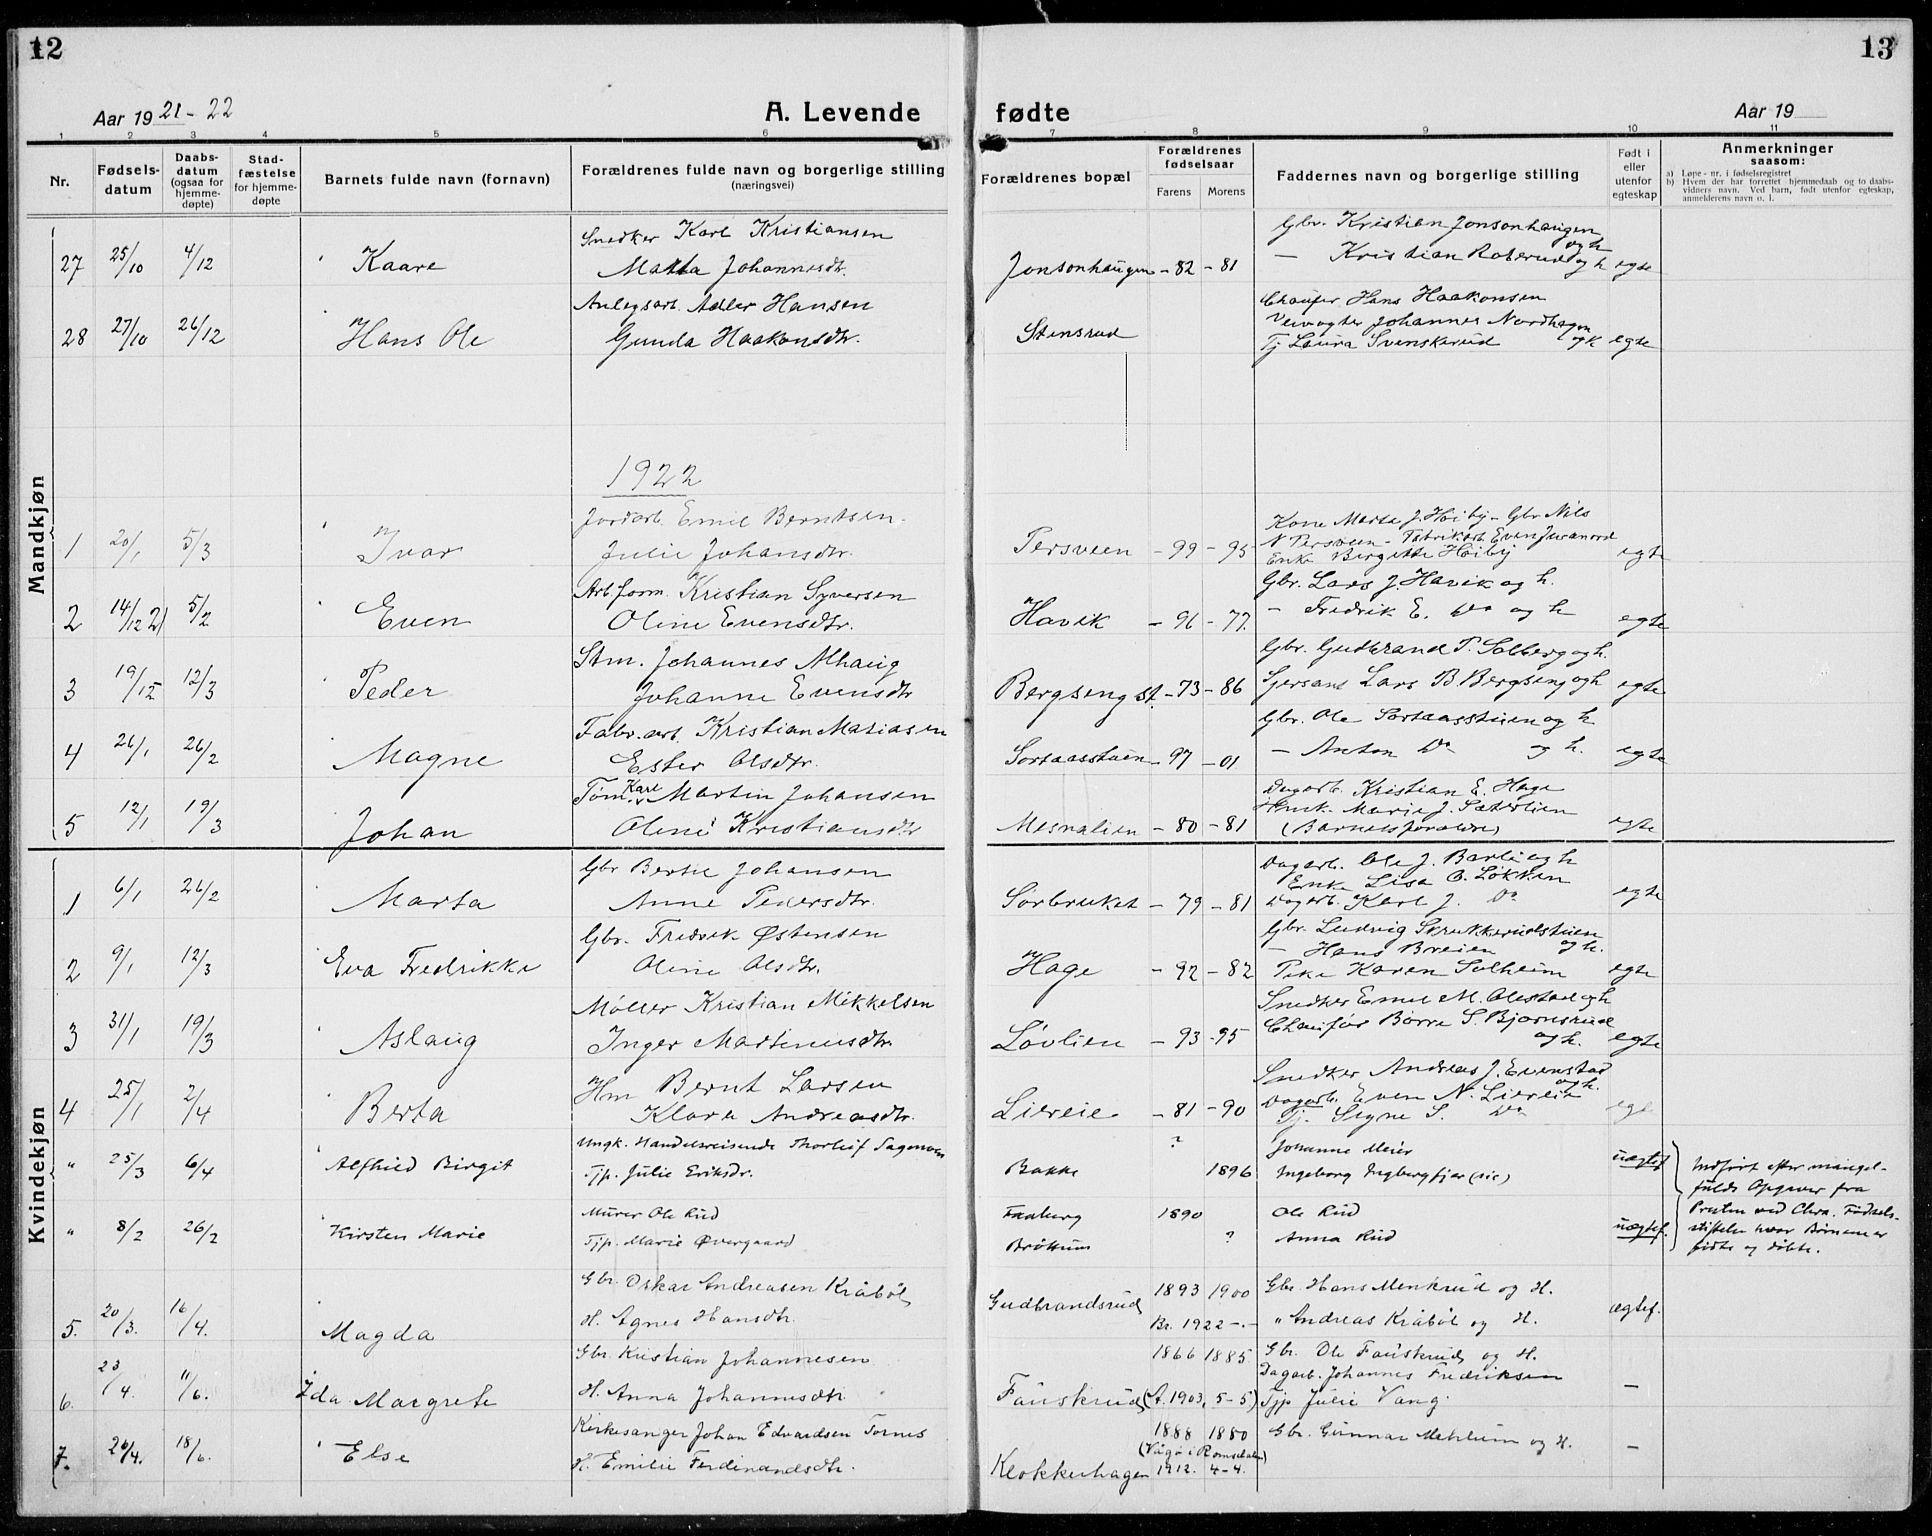 12
13
Aar 1921-22
A. Levende
fødte
Aar 19
1 2 3 4 5 6 7 8 9 10 11
Nr.
Fødsels-
datum
Daabs-
datum
(ogsaa for
hjemme-
døpte)
Stad-
fæstelse
for hjemme-
døpte
Barnets fulde navn (fornavn)
Forældrenes fulde navn og borgerlige stilling
(næringsvei)
Forældrenes bopæl
Forældrenes
fødselsaar
Farens Morens
Faddernes navn og borgerlige stilling
Født i
eller
utenfor
egteskap
Anmerkninger
saasom:
a) Løpe-nr. i fødselsregistret
b) Hvem der har forrettet hjemmedaab og to daabs-
vidners navn. Ved barn, født utenfor egteskap,
anmelderens navn o. l.
Mandkjøn
Snedker Karl Kristiansen
Gbr. Kristian Jonsonhaugen
og h
27 25/10 4/12 Kaare Marta Johannesdtr. Jonsonhaugen - 82 - 81 — Kristian Roberud og h egte
Anlegsarb. Adler Hansen
Chaufør Hans Haakonsen
Veivogter Johannes Nordhagen
28 27/10 26/12 Hans Ole Gunda Haakonsdtr. Stensrud Tj Laura Svenskerud og k egte
1922
Jordarb. Emil Berntsen.
Kone Marta J. Høiby - Gbr Nils
N Persveen - Fabrikarb Even Juranord
1 20/1 5/3 Ivar Julie Johansdtr. Persveen - 99 - 95 Enke Bergitte Høiby egte
Arb.form. Kristian Syversen
Gbr. Lars J. Havik og h.
2 14/12 21 5/2 Even Oline Evensdtr. Havik - 96 - 77. — Fredrik E. Do og h egte
Stm. Johannes Alhaug
Gbr. Gudbrand P. Solberg og h.
3 19/12 12/3 Peder Johanne Evensdtr Bergseng st. - 73 - 86 Sjersant Lars B. Bergseng og h egte
Fabr.arb. Kristian Matiasen
Gbr. Ole Sortaasstuen og h
4 26/1 26/2 Magne Ester Olsdtr. Sortaasstuen - 97 - 01 — Anton Do og h. egte
Tøm. Karl Martin Johansen
Dagarb. Kristian E. Hage
Marie J. Sæterlien
5 12/1 19/3 Johan Oline Kristiansdtr Mesnalien - 80 - 81 (Barnets forældre) egte
Kvindekjøn
Gbr Bertel Johansen
Dagarb. Ole J. Barlie og h
Enke Lisa O. Løkken
1 6/1 26/2 Marta Anne Pedersdtr. Sorbruket - 79 - 81 Dagarb. Karl J. Do egte
Gbr. Fredrik Østensen
Gbr. Ludvig Skrukkerudstuen
— Hans Breien og h.
2 9/1 12/3 Eva Fredrikke Oline Olsdtr. Hage - 92 - 82 Pike Karen Solheim egte
Møller Kristian Mikkelsen
Snedker Emil M. Olestad og h
Chaufør Børre S. Bjørnsrud
3 31/1 19/3 Aslaug Inger Martinusdtr. Løvlien - 93 - 95 og h. egte
Hm Bernt Larsen
Snedker Andreas J. Evenstad
og h.
Dagarb. Even N. Liereie
4 25/1 2/4 Berta Klara Andreasdtr. Liereie - 81 - 90 Tj. Signe S. Do egte
Ungk. Handelsreisende Thorleif Sagmoen ? Johanne Meier
" 25/3 6/4 Alfhild Birgit Tjp. Julie Eriksdr. Bakke 1896 Ingeborg Ingbergfjer (sic) uægtef.
Indført efter mangel-
fulde Opgaver fra
Presten ved Chra. Fødsels-
stiftelse hvor Børnene er
fødte og døbte.
Murer Ole Rud Faaberg 1890 Ole Rud
" 8/2 26/2 Kirsten Marie Tjp. Marie Øvergaard Brøttum ? Anna Rud uægtef.
Gbr. Oskar Andreasen Kråbøl 1893 1900 Gbr. Hans Menkrud og H.
5. 20/3. 16/4. Magda H. Agnes Hansdtr. Gudbrandsrud Br. 1922 -.- " Andreas Kråbøl og H. ægtef.
Gbr. Kristian Johannesen 1866 1885 Gbr. Ole Fauskrud og H.
Dagarb. Johannes Fredriksen
6. 23/4. 11/6. Ida Margrete H. Anna Johannesdtr Fauskrud (A. 1903, 5-5) Tjp Julie Vang. —
Kirkesanger Johan Edvardsen Tornes 1888 1880 Gbr. Gunnar Mehlum og H.
(Vågø i Romsdalen)
7. 26/4. 18/6. Else H. Emilie Ferdinandsdtr. Klokkerhagen 1912. 4-4. —